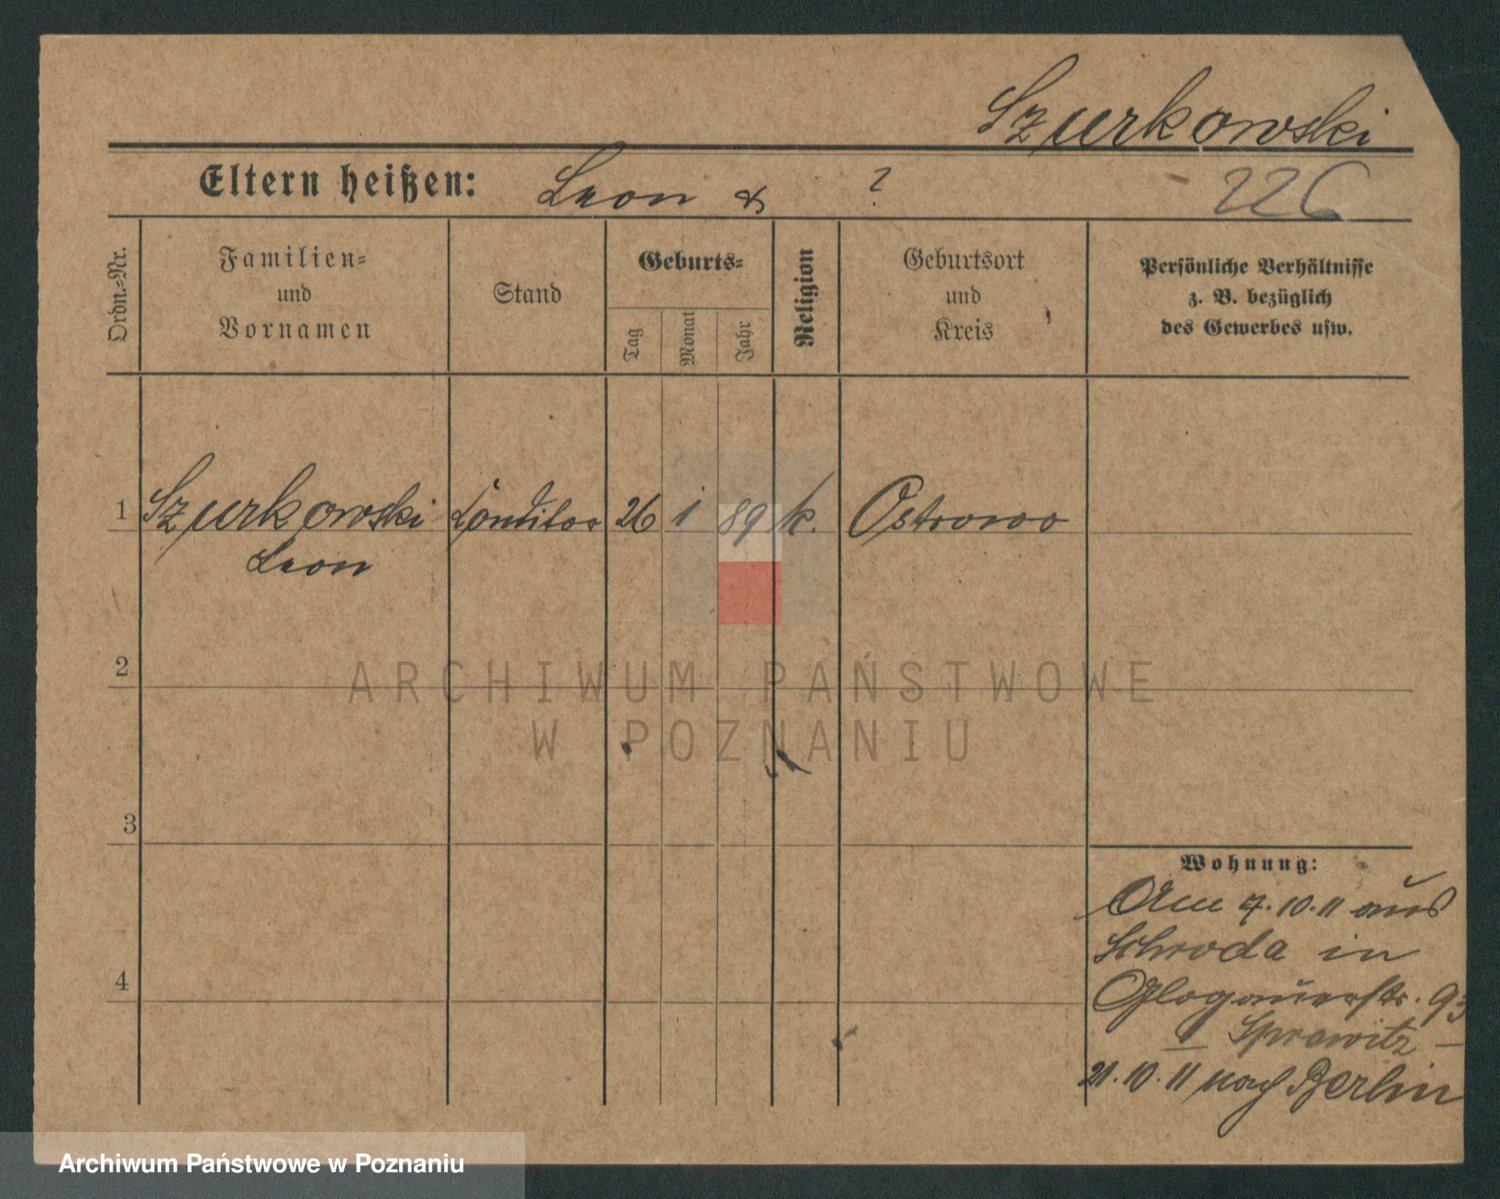 Szurkowski
Eltern heißen: Leon & ?
226
Ordn.-Nr.
Familien-
und
Vornamen
Stand
Geburts-
Tag
Monat
Jahr
Religion
Geburtsort
und
Kreis
Persönliche Verhältnisse
z. B. bezüglich
des Gewerbes usw.
1 Szurkowski Conditor 26 1 89 k. Ostrowo
Leon
2
ARCHIWUM PAŃSTWOWE
W POZNANIU
3
Wohnung:
Am 7.10.11 aus
Schroda in
4
Glogauerstr. 93
Sprawitz -
21.10.11 nach Berlin
Archiwum Państwowe w Poznaniu